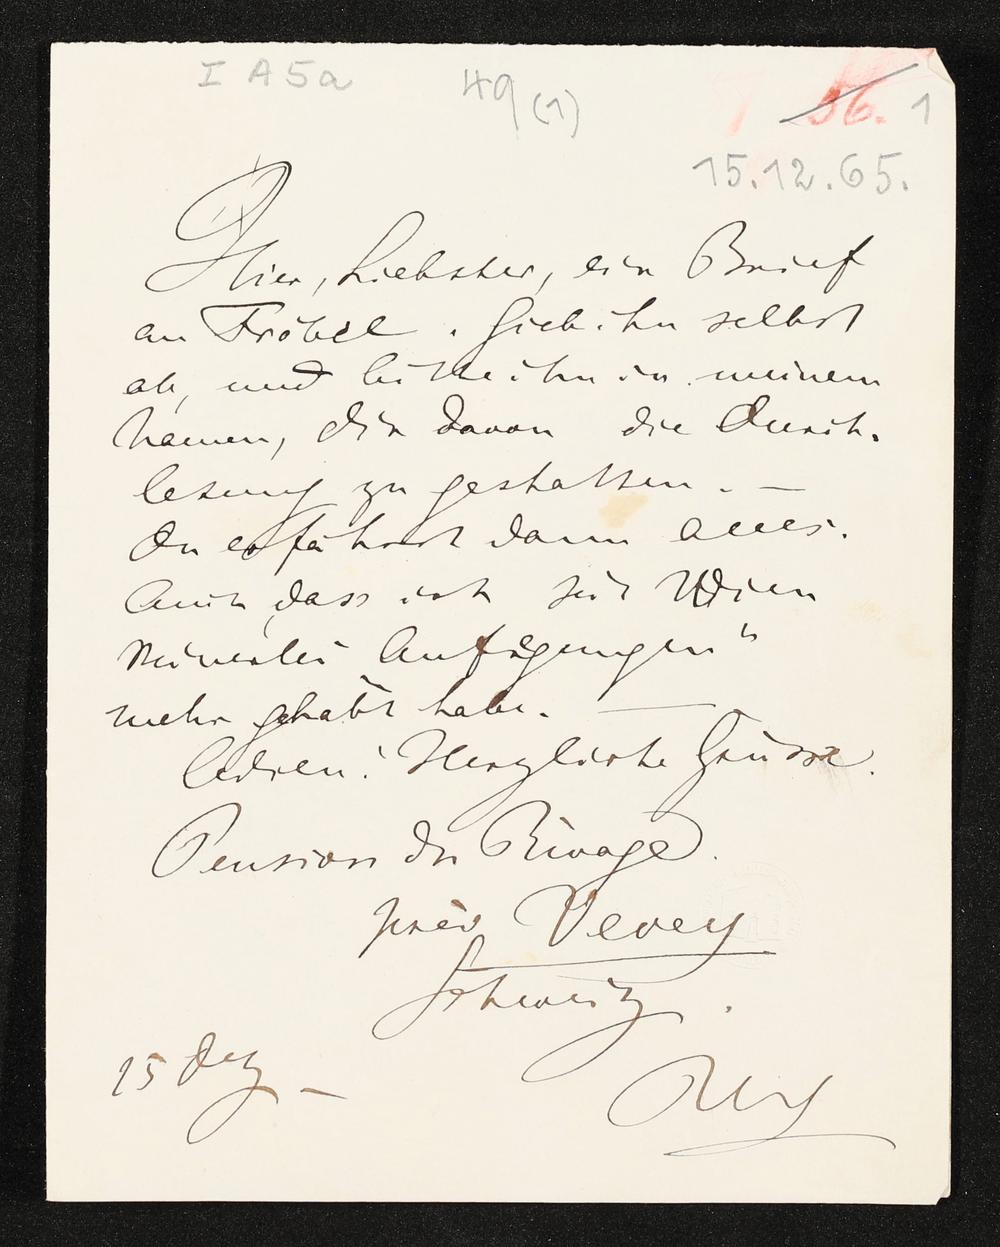 I A 5a 49 (1) 56. 1
15.12.65.
Hier, Liebster, ein Brief
an Fröbel. Gieb ihn selbst
ab, und bitte ihn in meinem
Namen, dir davon die Durch-
lesung zu gestatten. —
Du erfährst dann alles.
Auch dass ich seit Wien
keinerlei Aufregungen
mehr gehabt habe. —
Adieu! Herzliche Grüsse.
Pension du Rivage.
près Vevey
Schweitz.
15 Dez —